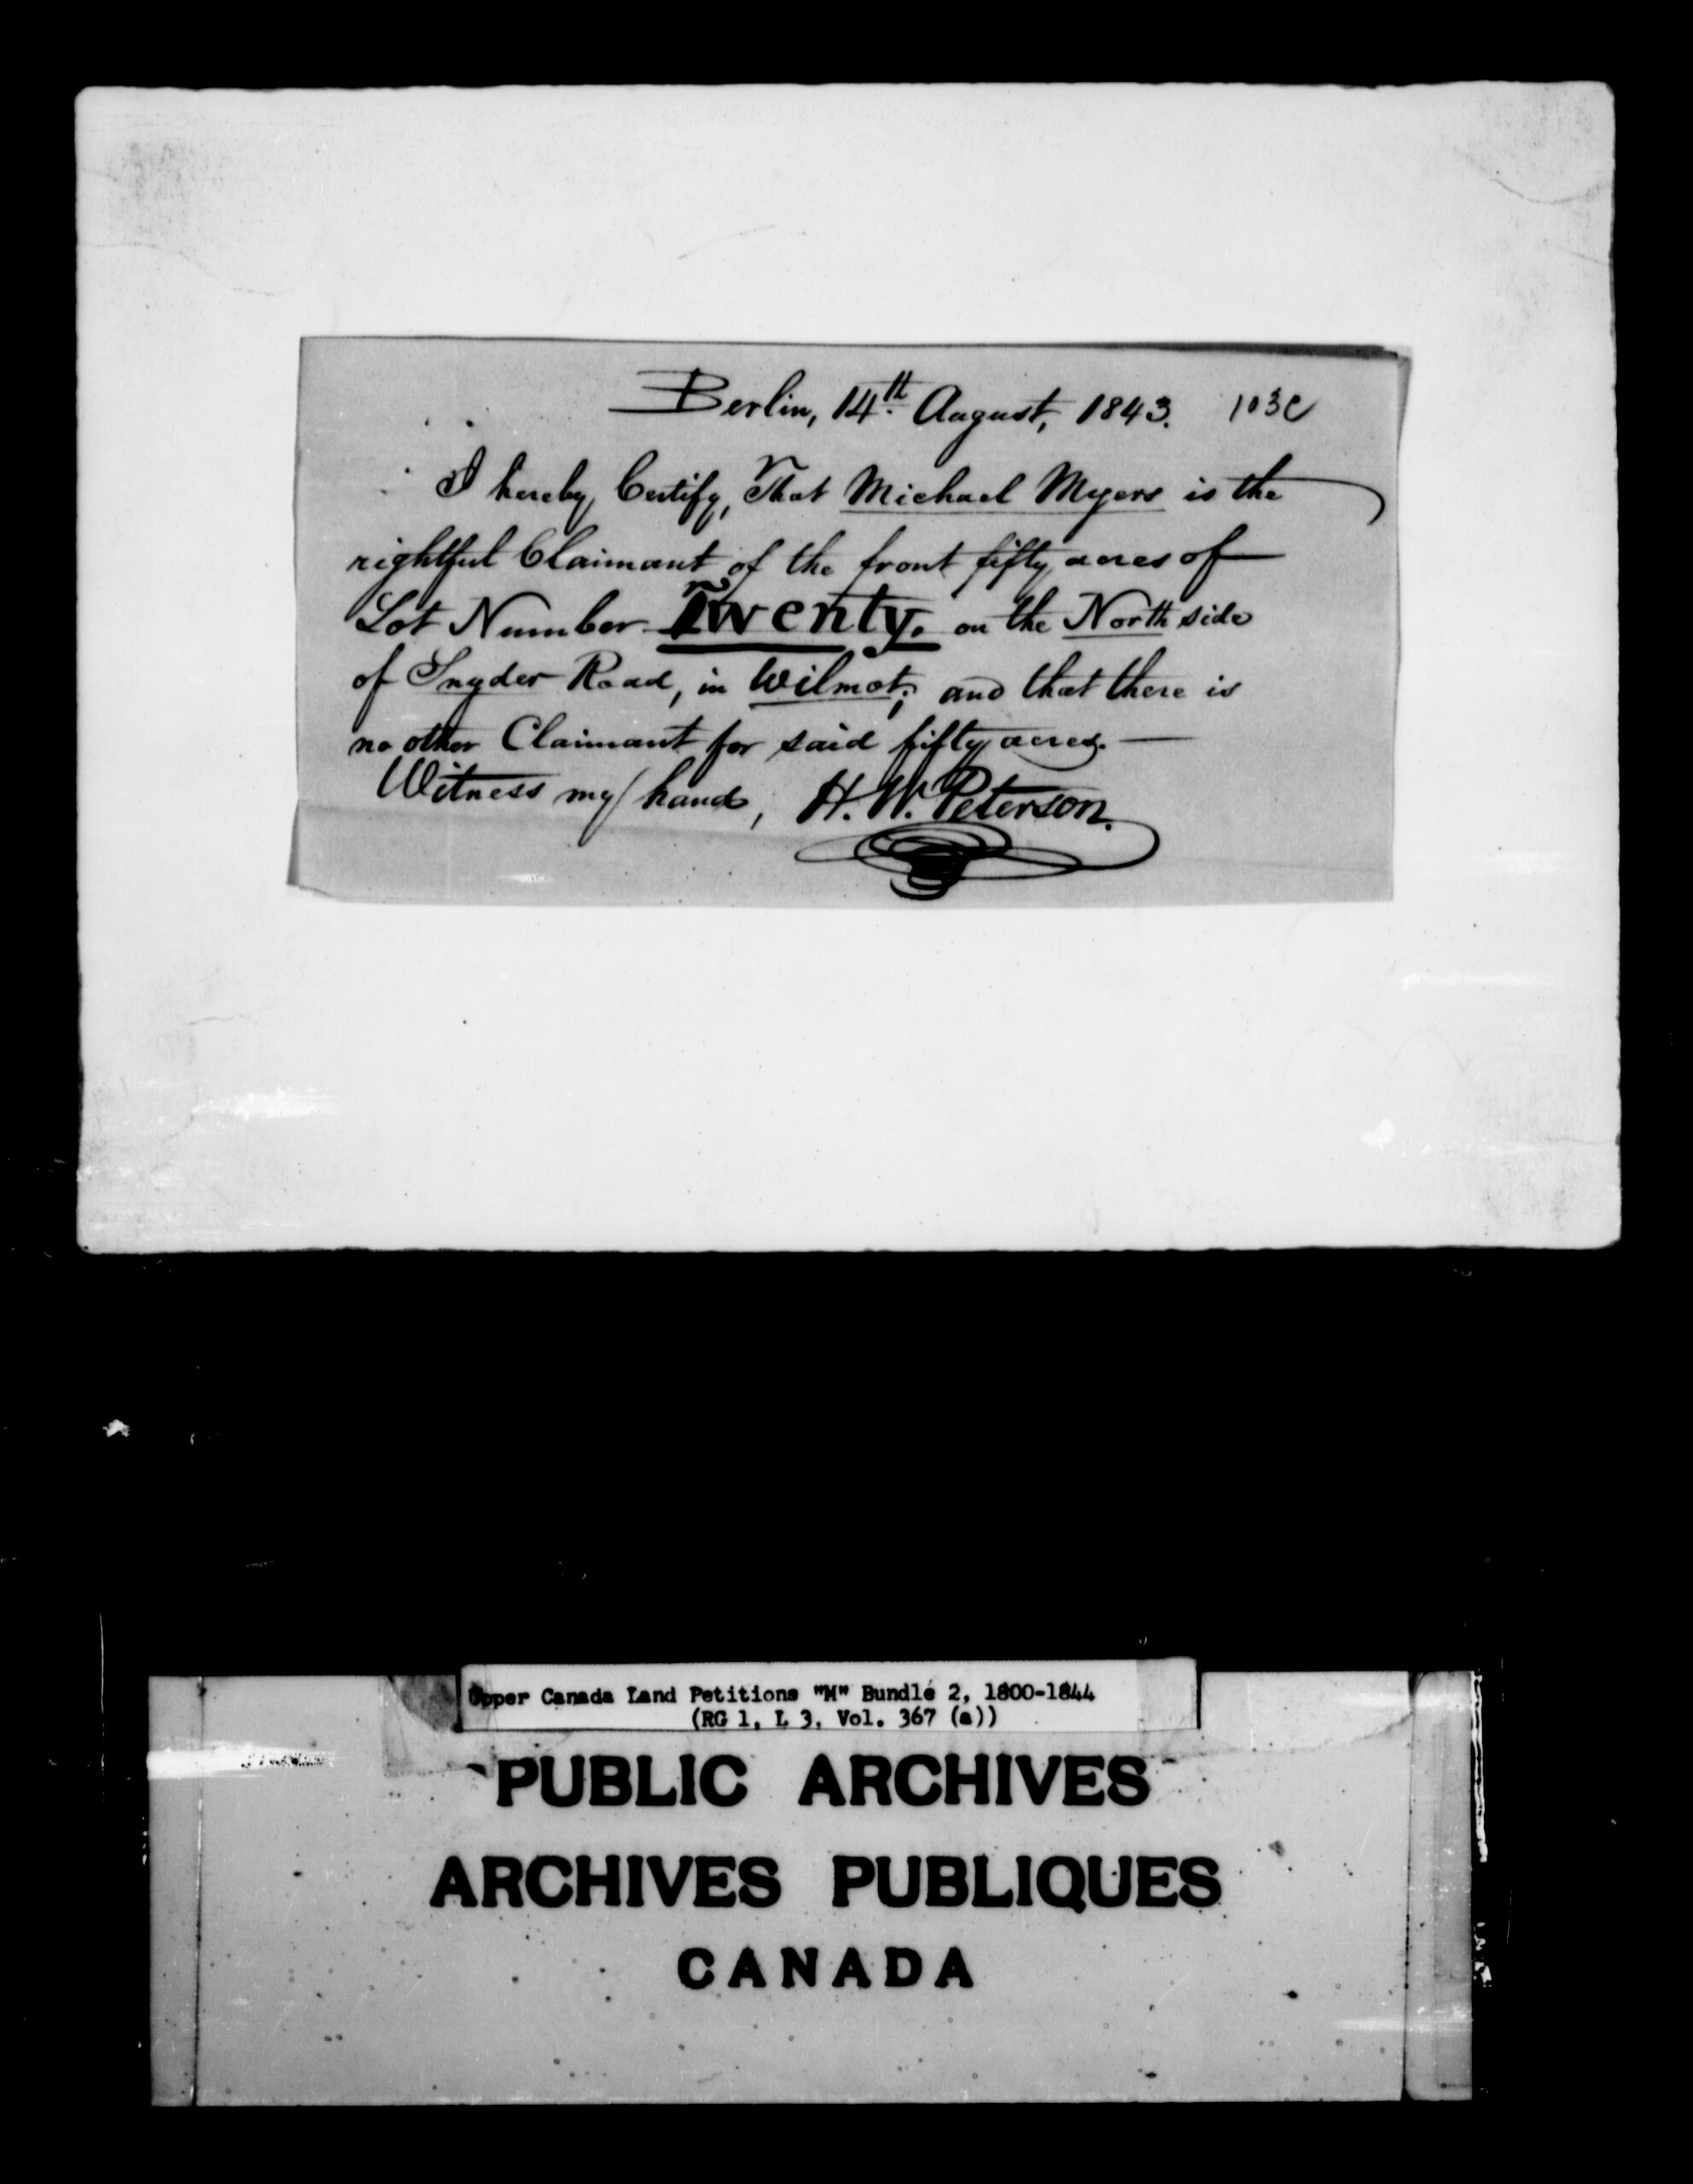 Berlin, 14th August, 1843. 103c
I hereby Certify, That Michael Myers is the
rightful Claimant of the front fifty acres of
Lot Number Twenty. on the North side
of Snyder Road, in Wilmot; and that there is
no other Claimant for said fifty acres. —
Witness my hand, H. W. Peterson.
Upper Canada Land Petitions "M" Bundle 2, 1800-1844
(RG 1, L 3, Vol. 367 (a))
PUBLIC ARCHIVES
ARCHIVES PUBLIQUES
CANADA